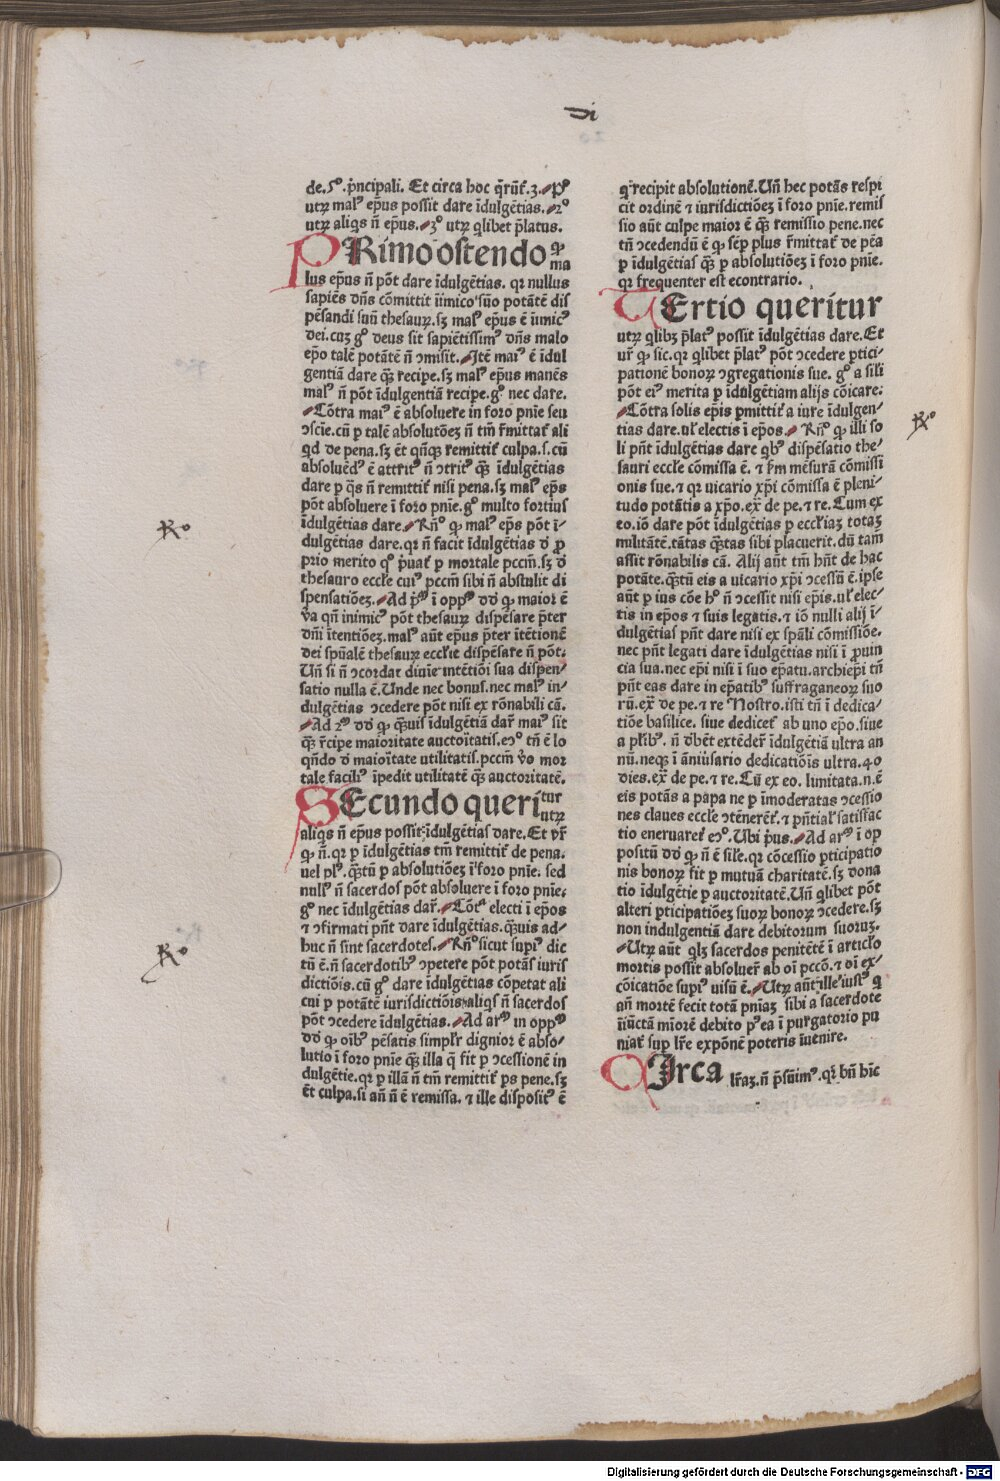 di
de.5º.p̄ncipali. Et circa hoc q̄rūt᷑.3. pº
utꝝ malꝰ ep̄us possit dare īdulgētias. 2º
utꝝ aliq̄s n̄ ep̄us. 3º utꝝ q̄libet p̄latus.
PRimo ostendo ꝙ
ma
lus ep̄us n̄ pōt dare īdulgētias. qꝛ nullus
sapiēs dn̄s cōmittit īimico suo potātē dis
pēsandi suū thesauꝝ. sꝫ malꝰ ep̄us ē īimicꝰ
dei. cuꝫ gº deus sit sapiētissimꝰ dn̄s malo
ep̄o talē potātē n̄ ↄmisit. Itē maiꝰ ē īdul
gentiā dare qᷓꝫ recipe. sꝫ malꝰ ep̄us manēs
malꝰ n̄ pōt īdulgentiā recipe. gº nec dare.
Cōtra maiꝰ ē absoluere in foro pn̄ie seu
ↄscīe. cū p talē absolutōeꝫ n̄ tm̄ r̄mittat᷑ ali
qd de pena. sꝫ ēt qn̄qꝫ remittit᷑ culpa. s. cū
absoluēdꝰ ē attritꝰ n̄ ↄtritꝰ qᷓꝫ īdulgētias
dare p q̄s n̄ remittit᷑ nisi pena. sꝫ malꝰ ep̄s
pōt absoluere ī foro pn̄ie. gº multo fortius
īdulgētias dare. Rn̄º ꝙ malꝰ ep̄s pōt ī-
dulgētias dare. qꝛ n̄ facit īdulgētias d̄ ꝓ
prio merito qº p̄uat᷑ p mortale pccm̄. sꝫ d̄
thesauro eccl̄e cuiꝰ pccm̄ sibi n̄ abstulit di
spensatiōeꝫ. Ad p̄ᵐ ī oppᵐ dd̄ ꝙ maior ē
v̄a qn̄ inimicꝰ pōt thesauꝝ dispēsare p̄ter
dn̄i ītentiōeꝫ. malꝰ aūt ep̄us p̄ter ītētionē
dei spūalē thesauꝝ eccl̄ie dispēsare n̄ pōt.
Un̄ si n̄ ↄcordat diuīe intētiōi sua dispen
satio nulla ē. Unde nec bonus. nec malꝰ in-
dulgētias ↄcedere pōt nisi ex rōnabili cā.
Ad 2ᵐ dd̄ ꝙ qᷓꝫuis īdulgētiā dar̄ maiꝰ sit
qᷓꝫ r̄cipe maioritate auctoītatis. eↄº tn̄ ē lo
qn̄do d̄ maioītate utilitatis. pccm̄ v̄o mor
tale faciliꝰ īpedit utilitatē qᷓꝫ auctoritatē.
SEcundo queritur
utꝝ
aliq̄s n̄ ep̄us possit īdulgētias dare. Et vr̄
ꝙ n̄. qꝛ p īdulgētias tm̄ remittit᷑ de pena.
uel plꝰ. qᷓꝫtū p absolutiōeꝫ ī foro pn̄ie. sed
nullꝰ n̄ sacerdos pōt absoluere ī foro pn̄ie.
gº nec īdulgētias dar̄. Cōtᵃ electi ī ep̄os
⁊ ↄfirmati pn̄t dare īdulgētias. qᷓꝫuis ad-
huc n̄ sint sacerdotes. Rn̄º sicut supiꝰ dic
tū ē. n̄ sacerdotibꝰ ↄpetere pōt potās iuris
dictiōis. cū gº dare īdulgētias cōpetat ali
cui p potātē iurisdictiōis. aliq̄s n̄ sacerdos
pōt ↄcedere īdulgētias. Ad arᵐ in oppᵐ
dd̄ ꝙ oībꝰ pēsatis simpl̄r dignior ē abso-
lutio ī foro pn̄ie qᷓꝫ illa q̄ fit p ↄcessionē in
dulgētie. qꝛ p illā n̄ tm̄ remittit᷑ ps pene. sꝫ
ēt culpa. si an̄ n̄ ē remissa. ⁊ ille dispositꝰ ē
q recipit absolutionē. Un̄ hec potās respi
cit ordinē ⁊ iurisdictiōeꝫ ī foro pn̄ie. remis
sio aūt culpe maior ē qᷓꝫ remissio pene. nec
tn̄ ↄcedendū ē ꝙ sēp plus r̄mittat᷑ de pēa
p īdulgētias qᷓꝫ p absolutiōeꝫ ī foro pn̄ie.
qꝛ frequenter est econtrario.
TErtio queritur
utꝝ q̄libꝫ p̄latꝰ possit īdulgētias dare. Et
ur̄ ꝙ sic. qꝛ q̄libet p̄latꝰ pōt ↄcedere ptici-
pationē bonoꝝ ↄgregationis sue. gº a sil̄i
pōt eiꝰ merita p īdulgētiam alijs cōicare.
Cōtra solis ep̄is pmittit᷑ a iure īdulgen-
tias dare. ul̄ electis ī ep̄os. Rn̄º ꝙ illi so
li pn̄t īdulgētias dare qbꝰ dispēsatio the-
sauri eccl̄e cōmissa ē. ⁊ s̄m mēsurā cōmissi
onis sue. ⁊ qꝛ uicario xp̄i cōmissa ē pleni-
tudo potātis a xp̄o. ex̄ de pe. ⁊ re. Cum ex
eo. iō dare pōt īdulgētias p eccl̄iaꝫ totaꝫ
militātē. tātas qᷓꝫtas sibi placuerit. dū tam̄
assit rōnabilis cā. Alij aūt tm̄ hn̄t de hac
potāte. qᷓꝫtū eis a uicario xp̄i ↄcessū ē. ipse
aūt p ius cōe hº n̄ ↄcessit nisi ep̄is. ul̄ elec-
tis in ep̄os ⁊ suis legatis. ⁊ iō nulli alij ī-
dulgētias pn̄t dare nisi ex sp̄ali cōmissiōe.
nec pn̄t legati dare īdulgētias nisi ī ꝓuin
cia sua. nec ep̄i nisi ī suo ep̄atu. archiep̄i tn̄
pn̄t eas dare in ep̄atibꝰ suffraganeoꝝ suo
rū. ex̄ de pe. ⁊ re Nostro. isti tn̄ ī dedica-
tiōe basilice. siue dedicet᷑ ab uno ep̄o. siue
a pl̄ibꝰ. n̄ dēbēt extēder̄ īdulgētiā ultra an
nū. neqꝫ ī āniuersario dedicatiōis ultra. 40
dies. ex̄ de pe. ⁊ re. Cū ex eo. limitata. n. ē
eis potās a papa ne p īmoderatas ↄcessio
nes claues eccl̄e ↄtēnerēt᷑. ⁊ pn̄tial̄ satisfac
tio eneruaret᷑ eↄº. Ubi p̄us. Ad arᵐ ī op
positū dd̄ ꝙ n̄ ē sil̄e. qꝛ cōcessio pticipatio
nis bonoꝝ fit p mutuā charitatē. sꝫ dona
tio īdulgētie p auctoritatē. Un̄ q̄libet pōt
alteri pticipatiōeꝫ suoꝝ bonoꝝ ↄcedere. sꝫ
non indulgentiā dare debitorum suoruꝫ.
Utꝝ aūt q̄lꝫ sacerdos penitētē ī articl̄o
mortis possit absoluer̄ ab oī pccō. ⁊ oī ex-
cōicatiōe supiꝰ uisū ē. Utꝝ aūt ille iustꝰ q
an̄ mortē fecit totā pn̄iaꝫ sibi a sacerdote
īiūctā mīorē debito pꝰ ea ī purgatorio pu
niat᷑ sup lr̄e expōnē poteris īuenire.
CIrca lr̄aꝫ. n̄ p̄sūimꝰ. qꝛ bn̄ hīc
Rº
Rº
Rº
Digitalisierung gefördert durch die Deutsche Forschungsgemeinschaft - DFG